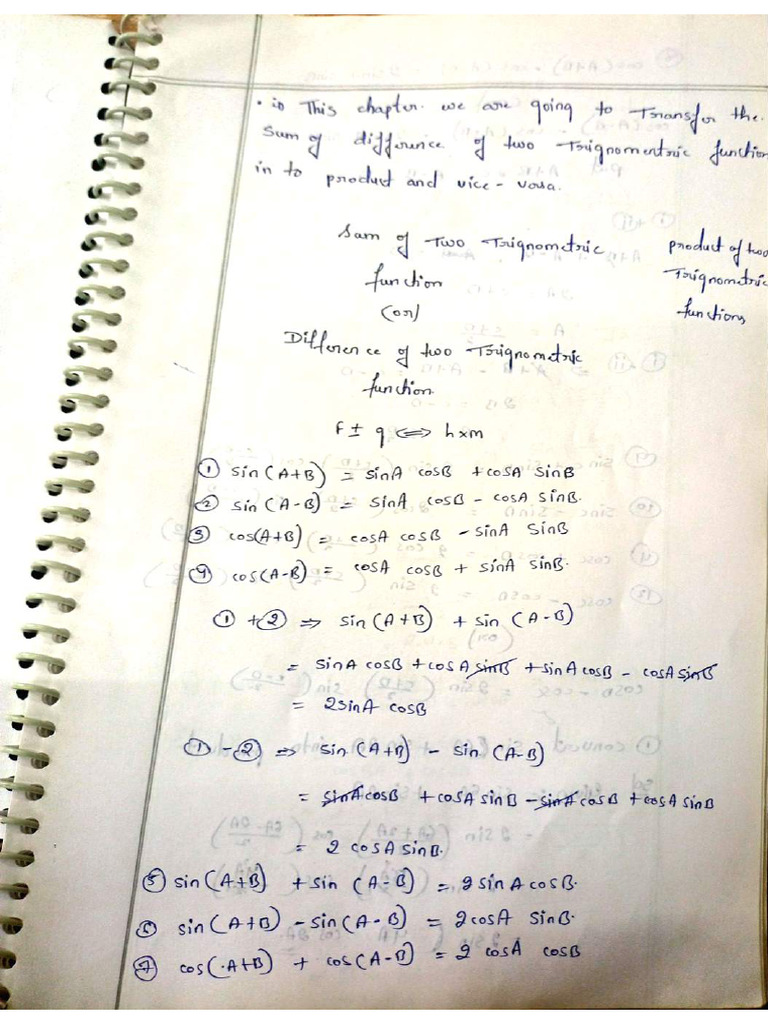 • in This chapter. we are going to Transfer the.
Sum of difference of two Trignomentric function
in to product and vice-vorsa.
Sum of Two Trignometric product of two
function Trignometric
(or) functions
Difference of two Trignometric
function.
F ± g ⇔ h×m
① sin(A+B) = sinA cosB + cosA sinB
② sin(A-B) = sinA cosB - cosA sinB.
③ cos(A+B) = cosA cosB - sinA sinB
④ cos(A-B) = cosA cosB + sinA sinB.
① + ② ⇒ sin(A+B) + sin(A-B)
= sinA cosB + cosA sinB + sinA cosB - cosA sinB
= 2sinA cosB
① - ② ⇒ sin(A+B) - sin(A-B)
= sinA cosB + cosA sinB - sinA cosB + cosA sinB
= 2 cosA sinB.
⑤ sin(A+B) + sin(A-B) = 2sinA cosB.
⑥ sin(A+B) - sin(A-B) = 2cosA sinB.
⑦ cos(A+B) + cos(A-B) = 2 cosA cosB